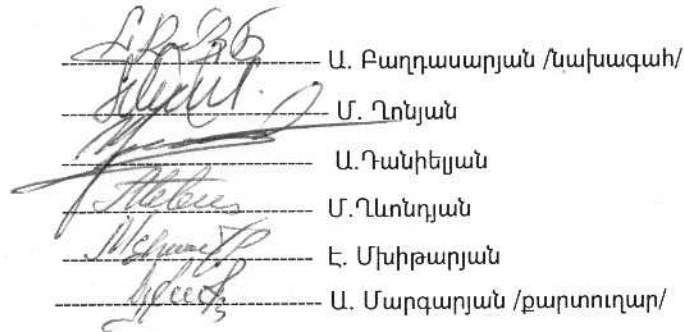 Ա. Բաղդասարյան /նախագահ/
Մ. Ղոնյան
Ա.Դանիելյան
Մ.Ղևոնդյան
Է. Մխիթարյան
Ա. Մարգարյան /քարտուղար/